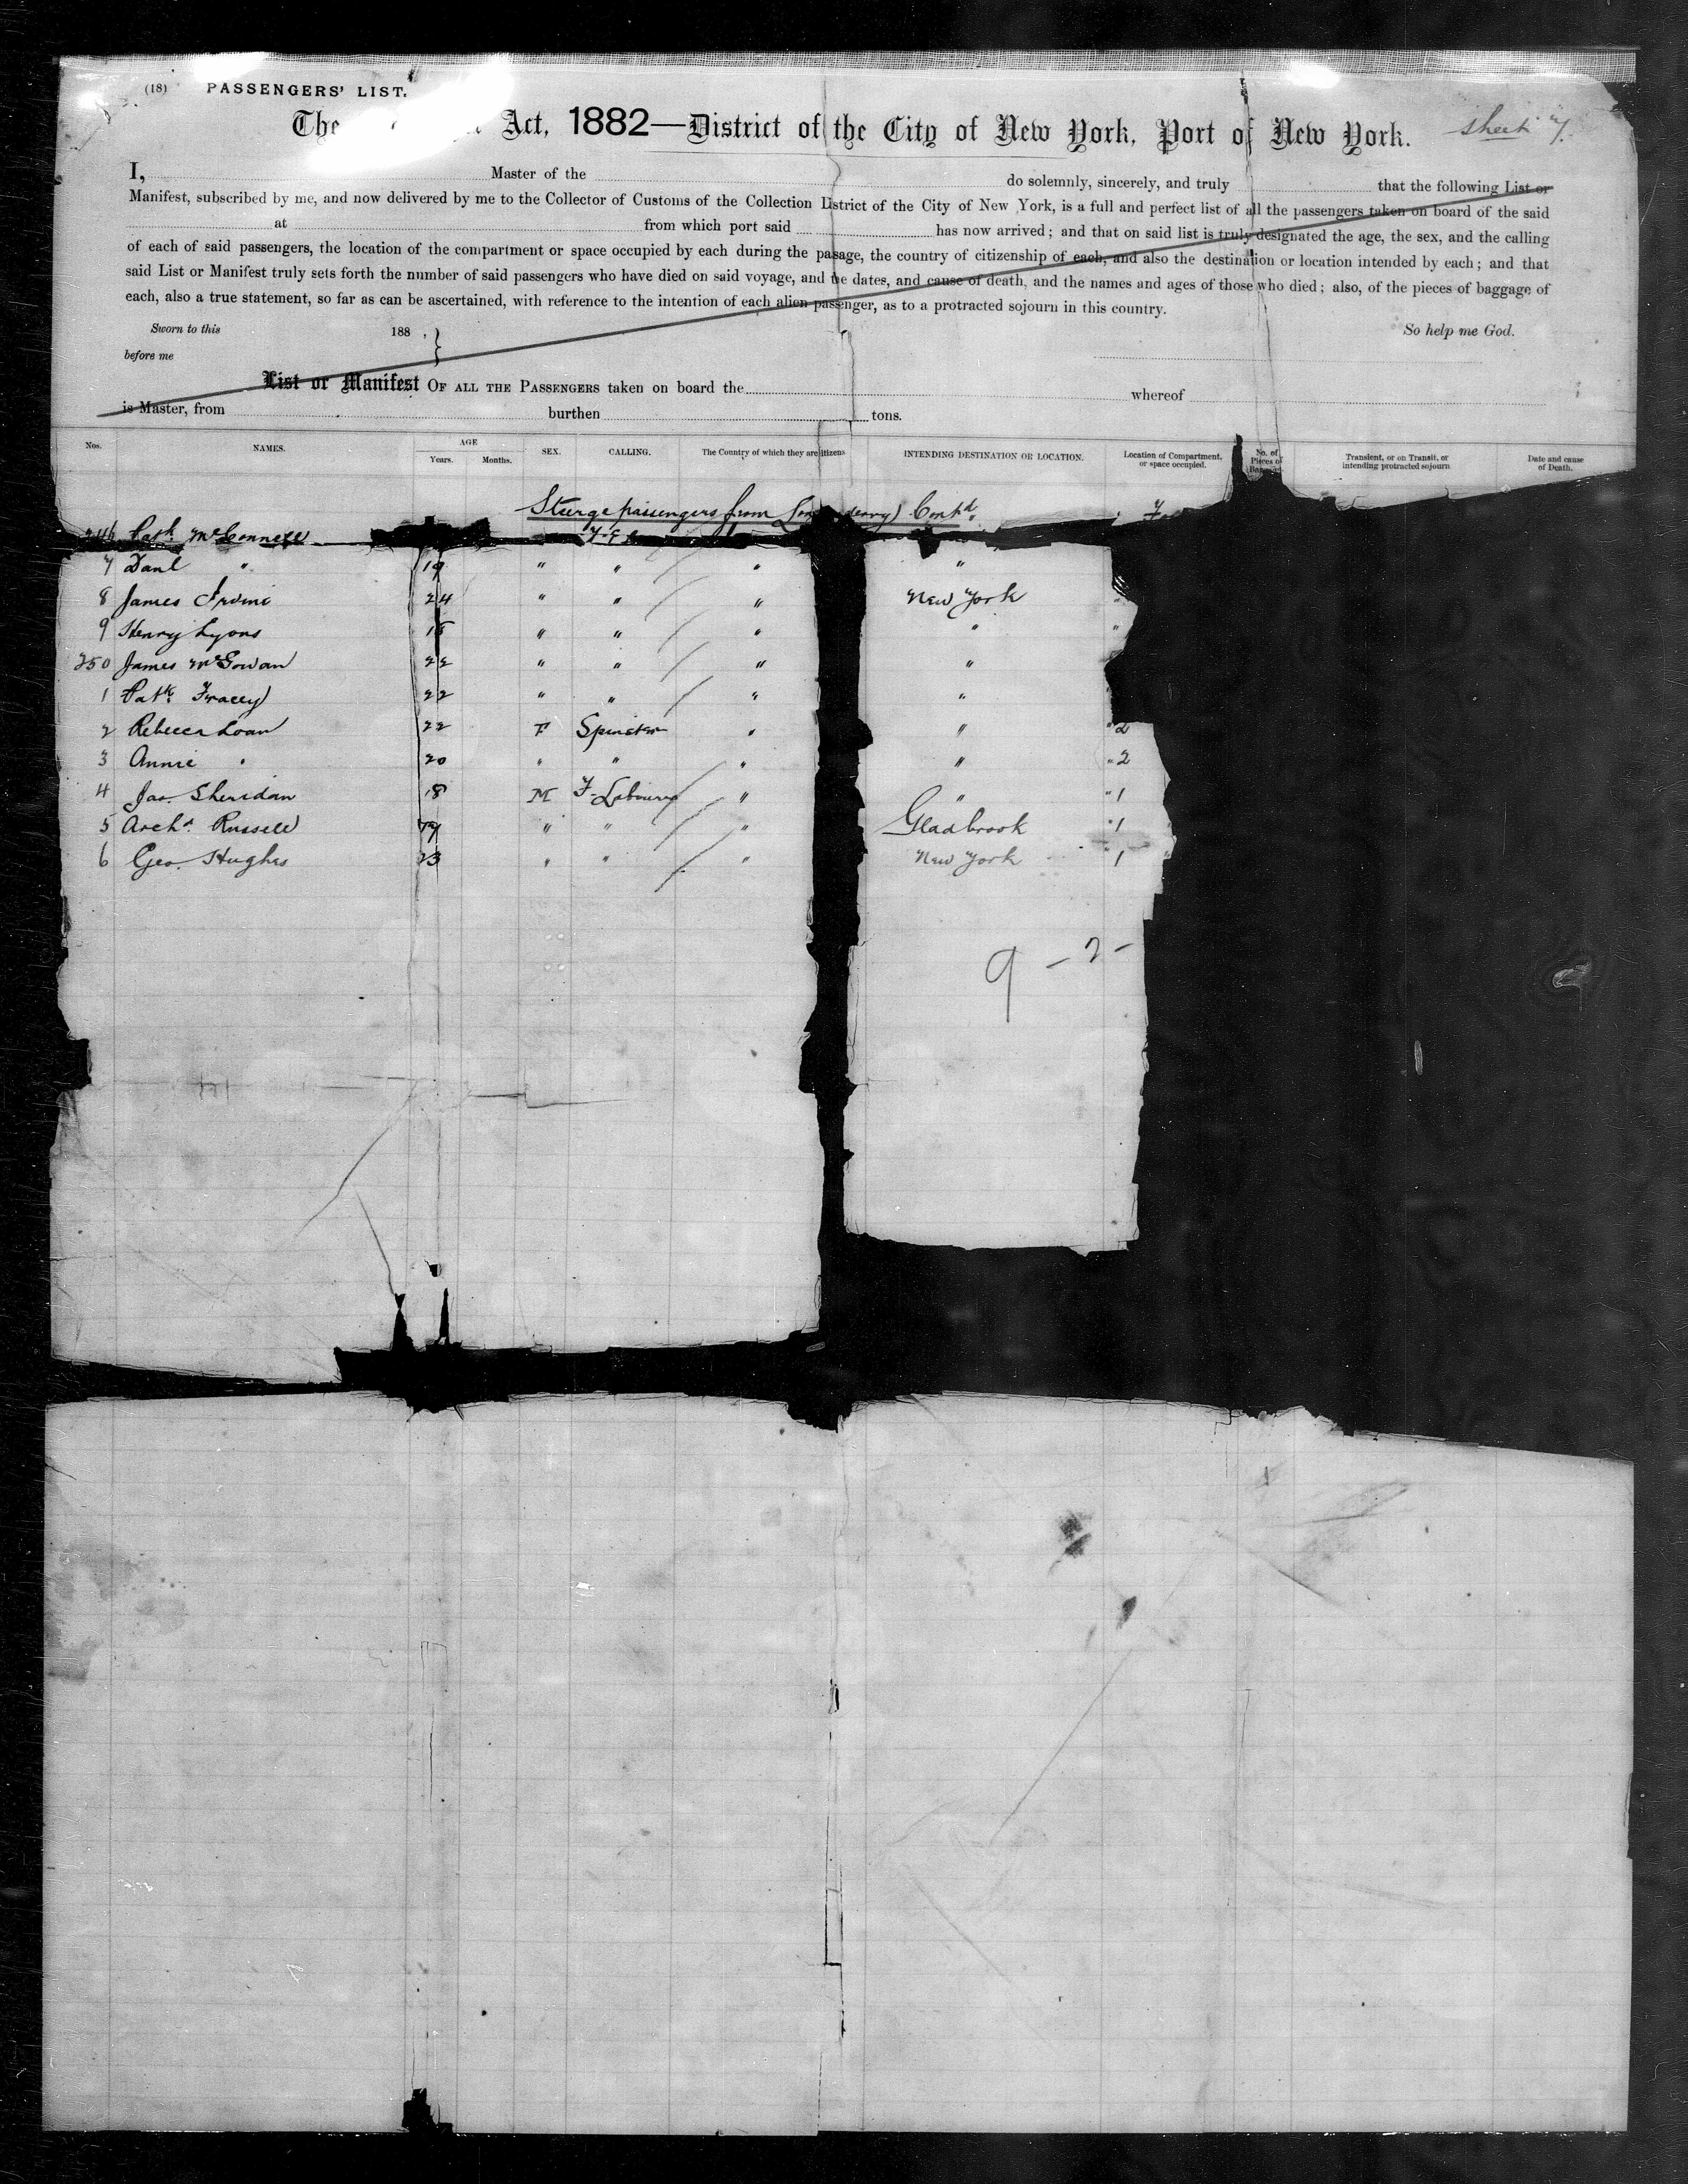 (18) PASSENGERS' LIST.
The Act, 1882—District of the City of New York, Port of New York. Sheet 7.
I, Master of the do solemnly, sincerely, and truly that the following List or
Manifest, subscribed by me, and now delivered by me to the Collector of Customs of the Collection District of the City of New York, is a full and perfect list of all the passengers taken on board of the said
at from which port said has now arrived; and that on said list is truly designated the age, the sex, and the calling
of each of said passengers, the location of the compartment or space occupied by each during the passage, the country of citizenship of each, and also the destination or location intended by each; and that
said List or Manifest truly sets forth the number of said passengers who have died on said voyage, and the dates, and cause of death, and the names and ages of those who died; also, of the pieces of baggage of
each, also a true statement, so far as can be ascertained, with reference to the intention of each alien passenger, as to a protracted sojourn in this country.
Sworn to this 188 , } So help me God.
before me
List or Manifest OF ALL THE PASSENGERS taken on board the whereof
is Master, from burthen tons.
Nos. NAMES. AGE Years. Months. SEX. CALLING. The Country of which they are citizens INTENDING DESTINATION OR LOCATION. Location of Compartment, or space occupied. No. of Pieces of Baggage Transient, or on Transit, or intending protracted sojourn Date and cause of Death.
Steerage passengers from Londonderry) Contd.
246 Patk. McConnell
7 Danl " 19 " " " "
8 James Irvine 24 " " " New York "
9 Henry Lyons 15 " " " " "
250 James McGowan 22 " " " "
1 Patk. Tracey 22 " " " "
2 Rebecca Loan 22 F Spinster " " " 2
3 Annie " 20 " " " " " 2
4 Jas. Sheridan 18 M F. Labourer " " " 1
5 Archd. Russell 19 " " " Gladbrook " 1
6 Geo. Hughes 23 " " " New York " 1
9 – 2 –